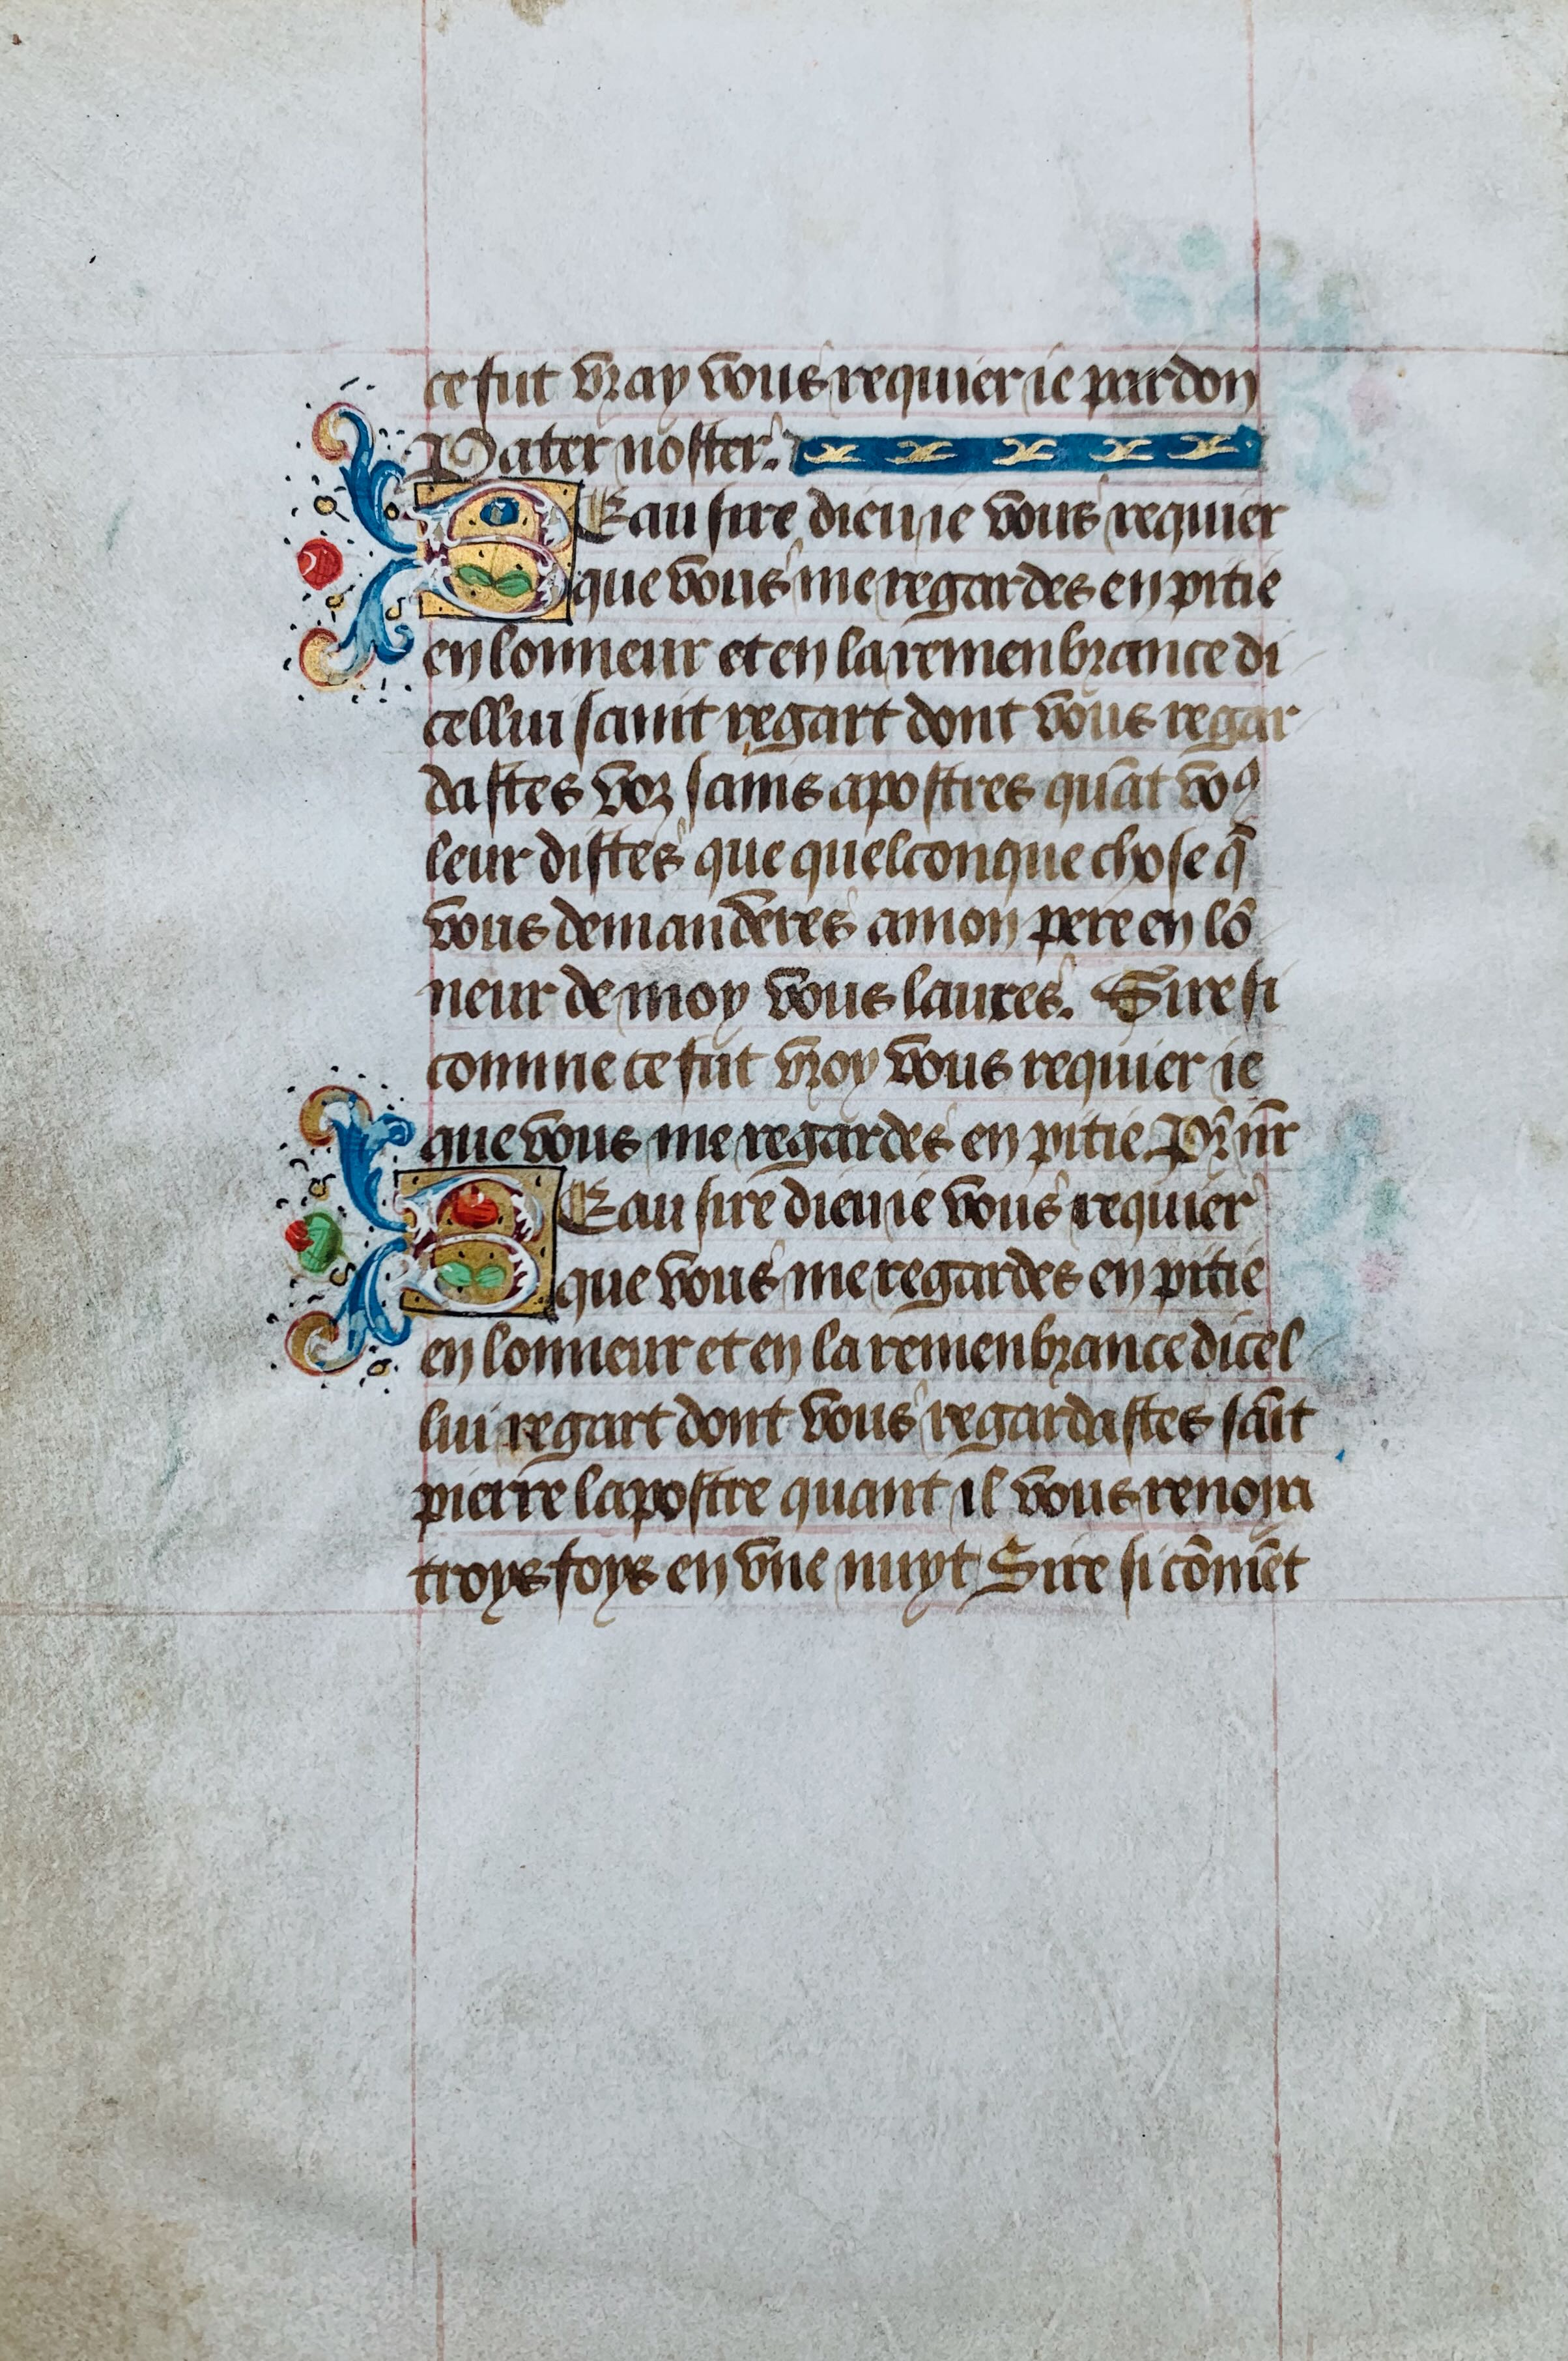 ce fut vray vous requier ie pardon
Pater noster.
BEau sire dieu ie vous requier
que vous me regardes en pitie
en lonneur et en la remenbrance di
cellui saint regart dont vous regar
dastes voz sains apostres quāt voꝰ
leur distes que quelconque chose q̄
vous demanderes a mon pere en lō
neur de moy vous laures. Sire si
comme ce fut vroy vous requier ie
que vous me regardes en pitie. Pr̄ nr̄
BEau sire dieu ie vous requier
que vous me regardes en pitie
en lonneur et en la remenbrance dicel
lui regart dont vous regardastes sāit
pierre lapostre quant il vous renoya
troys foys en vne nuyt Sire si cōmēt